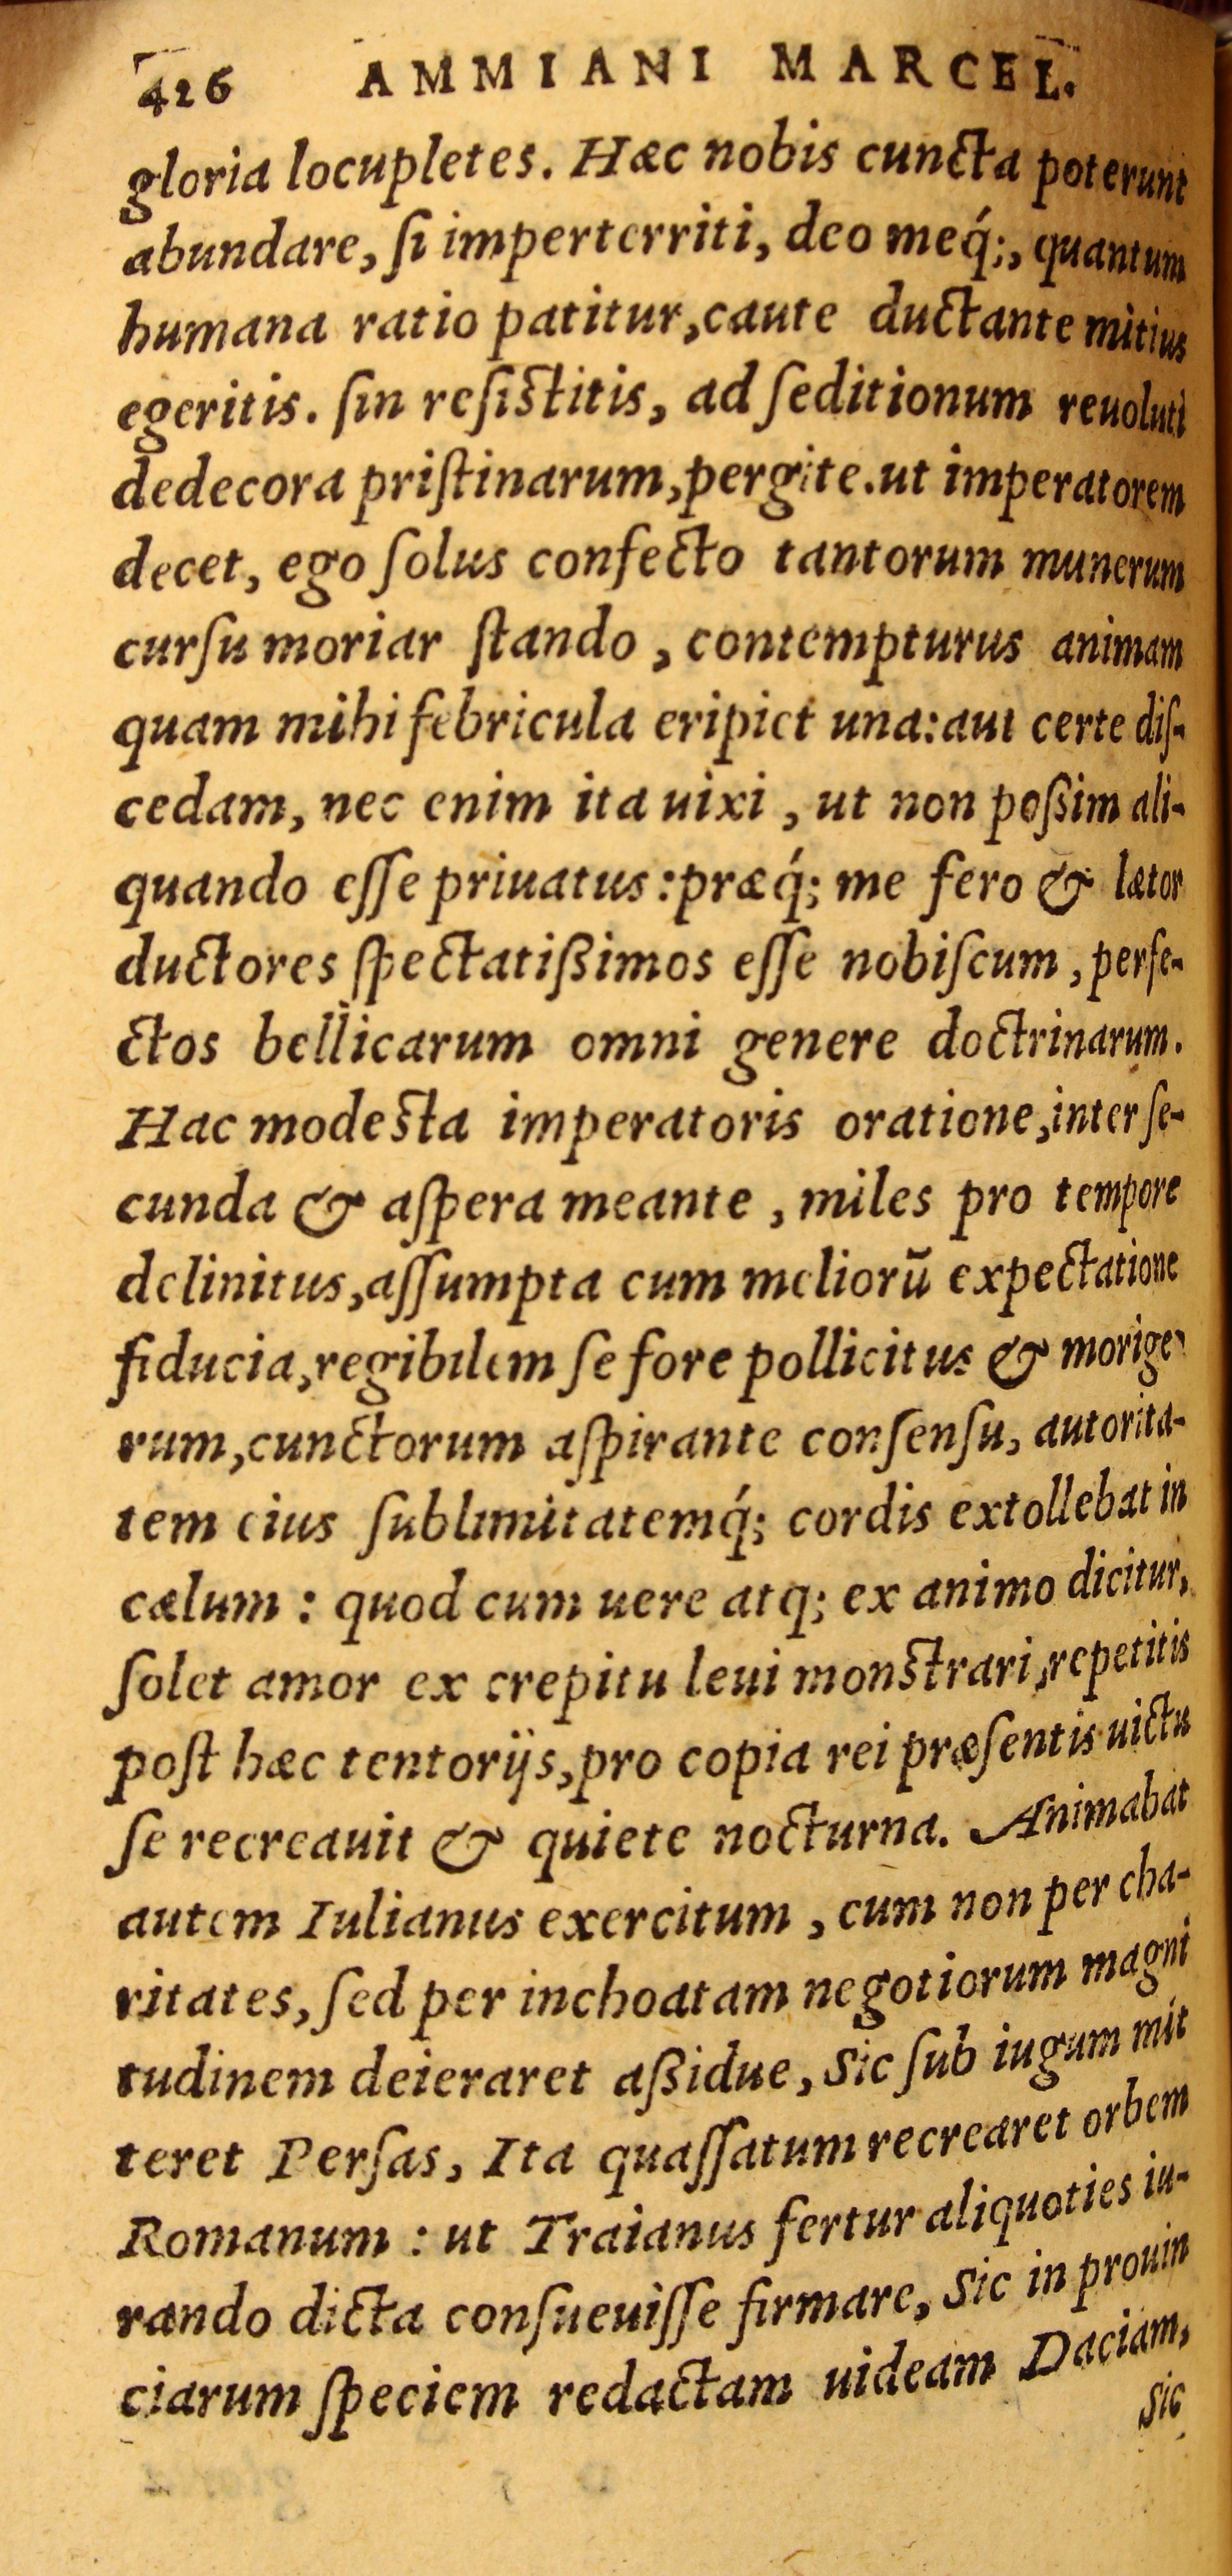 426 AMMIANI MARCEL.
gloria locupletes. Hæc nobis cuncta poterunt
abundare, ſi imperterriti, deo meq́;, quantum
humana ratio patitur,caute ductante mitius
egeritis. ſin reſiſtitis, ad ſeditionum reuoluti
dedecora priſtinarum,pergite.ut imperatorem
decet, ego ſolus confecto tantorum munerum
curſu moriar ſtando , contempturus animam
quam mihi febricula eripiet una:aut certe diſ-
cedam, nec enim ita uixi , ut non poßim ali-
quando eſſe priuatus:præq́; me fero & lætor
ductores ſpectatißimos eſſe nobiſcum , perfe-
ctos bellicarum omni genere doctrinarum.
Hac modeſta imperatoris oratione,inter ſe-
cunda & aſpera meante , miles pro tempore
delinitus,aſſumpta cum meliorū expectatione
fiducia,regibilem ſe fore pollicitus & morige-
rum,cunctorum aſpirante conſenſu, autorita-
tem eius ſublimitatemq́; cordis extollebat in
cælum : quod cum uere atq; ex animo dicitur,
ſolet amor ex crepitu leui monſtrari,repetitis
poſt hæc tentorijs,pro copia rei præſentis uictu
ſe recreauit & quiete nocturna. Animabat
autem Iulianus exercitum , cum non per cha-
ritates, ſed per inchoatam negotiorum magni
tudinem deieraret aßidue, Sic ſub iugum mit
teret Perſas, Ita quaſſatum recrearet orbem
Romanum : ut Traianus fertur aliquoties iu-
rando dicta conſueuiſſe firmare, Sic in prouin
ciarum ſpeciem redactam uideam Daciam,
Sic